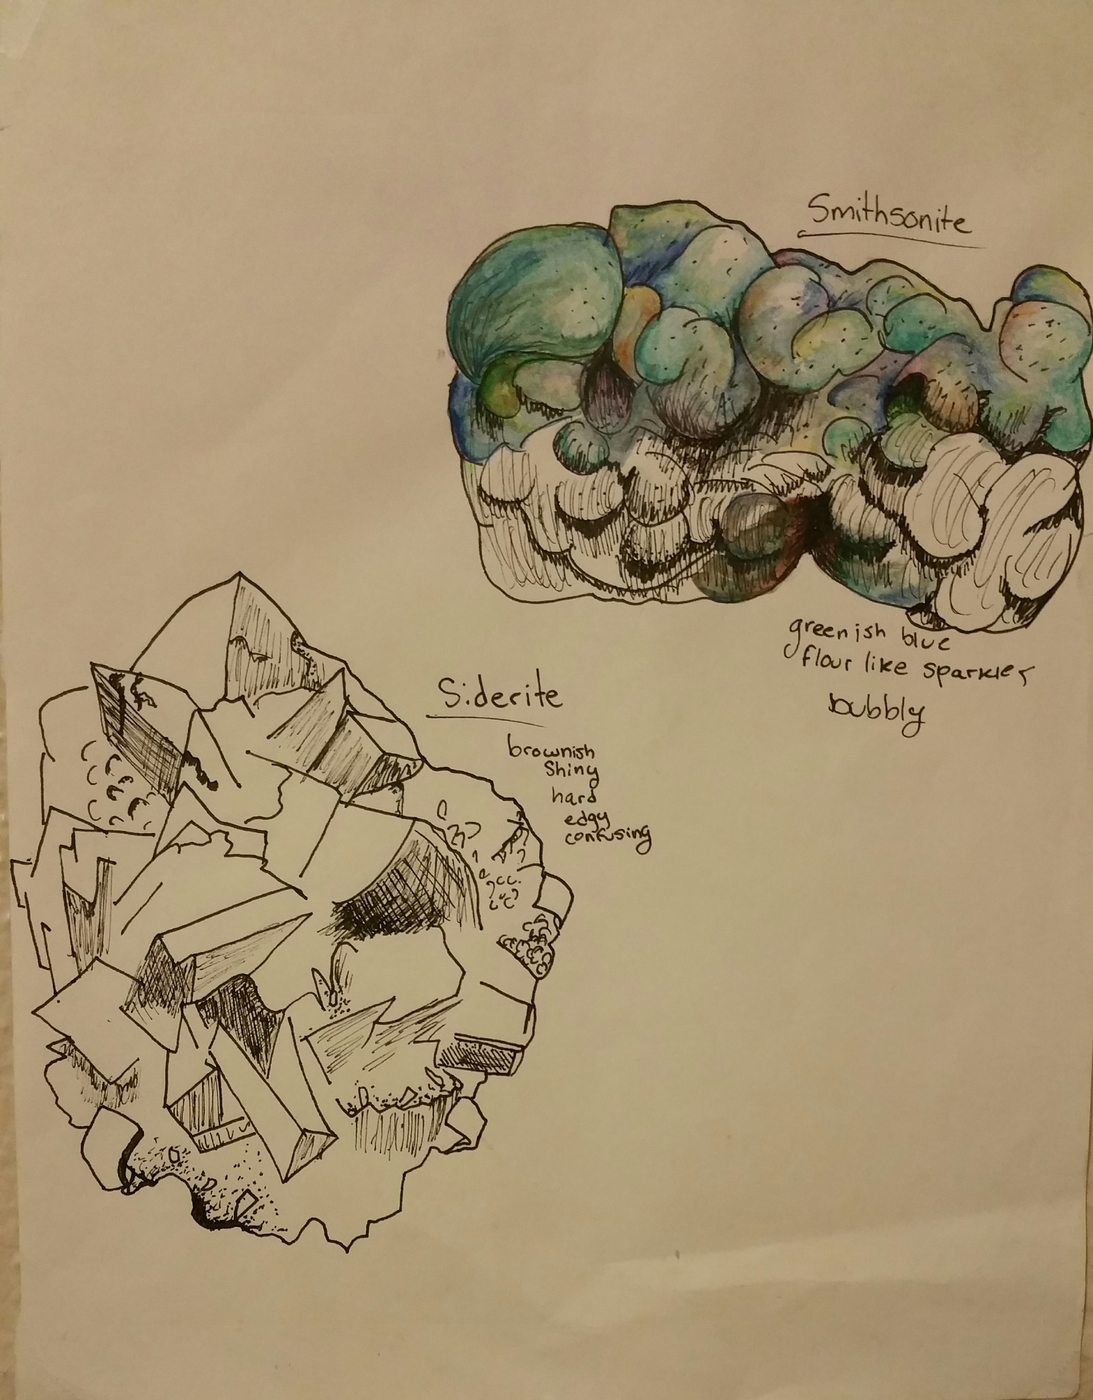 Smithsonite
greenish blue
flour like sparkles
bubbly
Siderite
brownish
shiny
hard
edgy
confusing